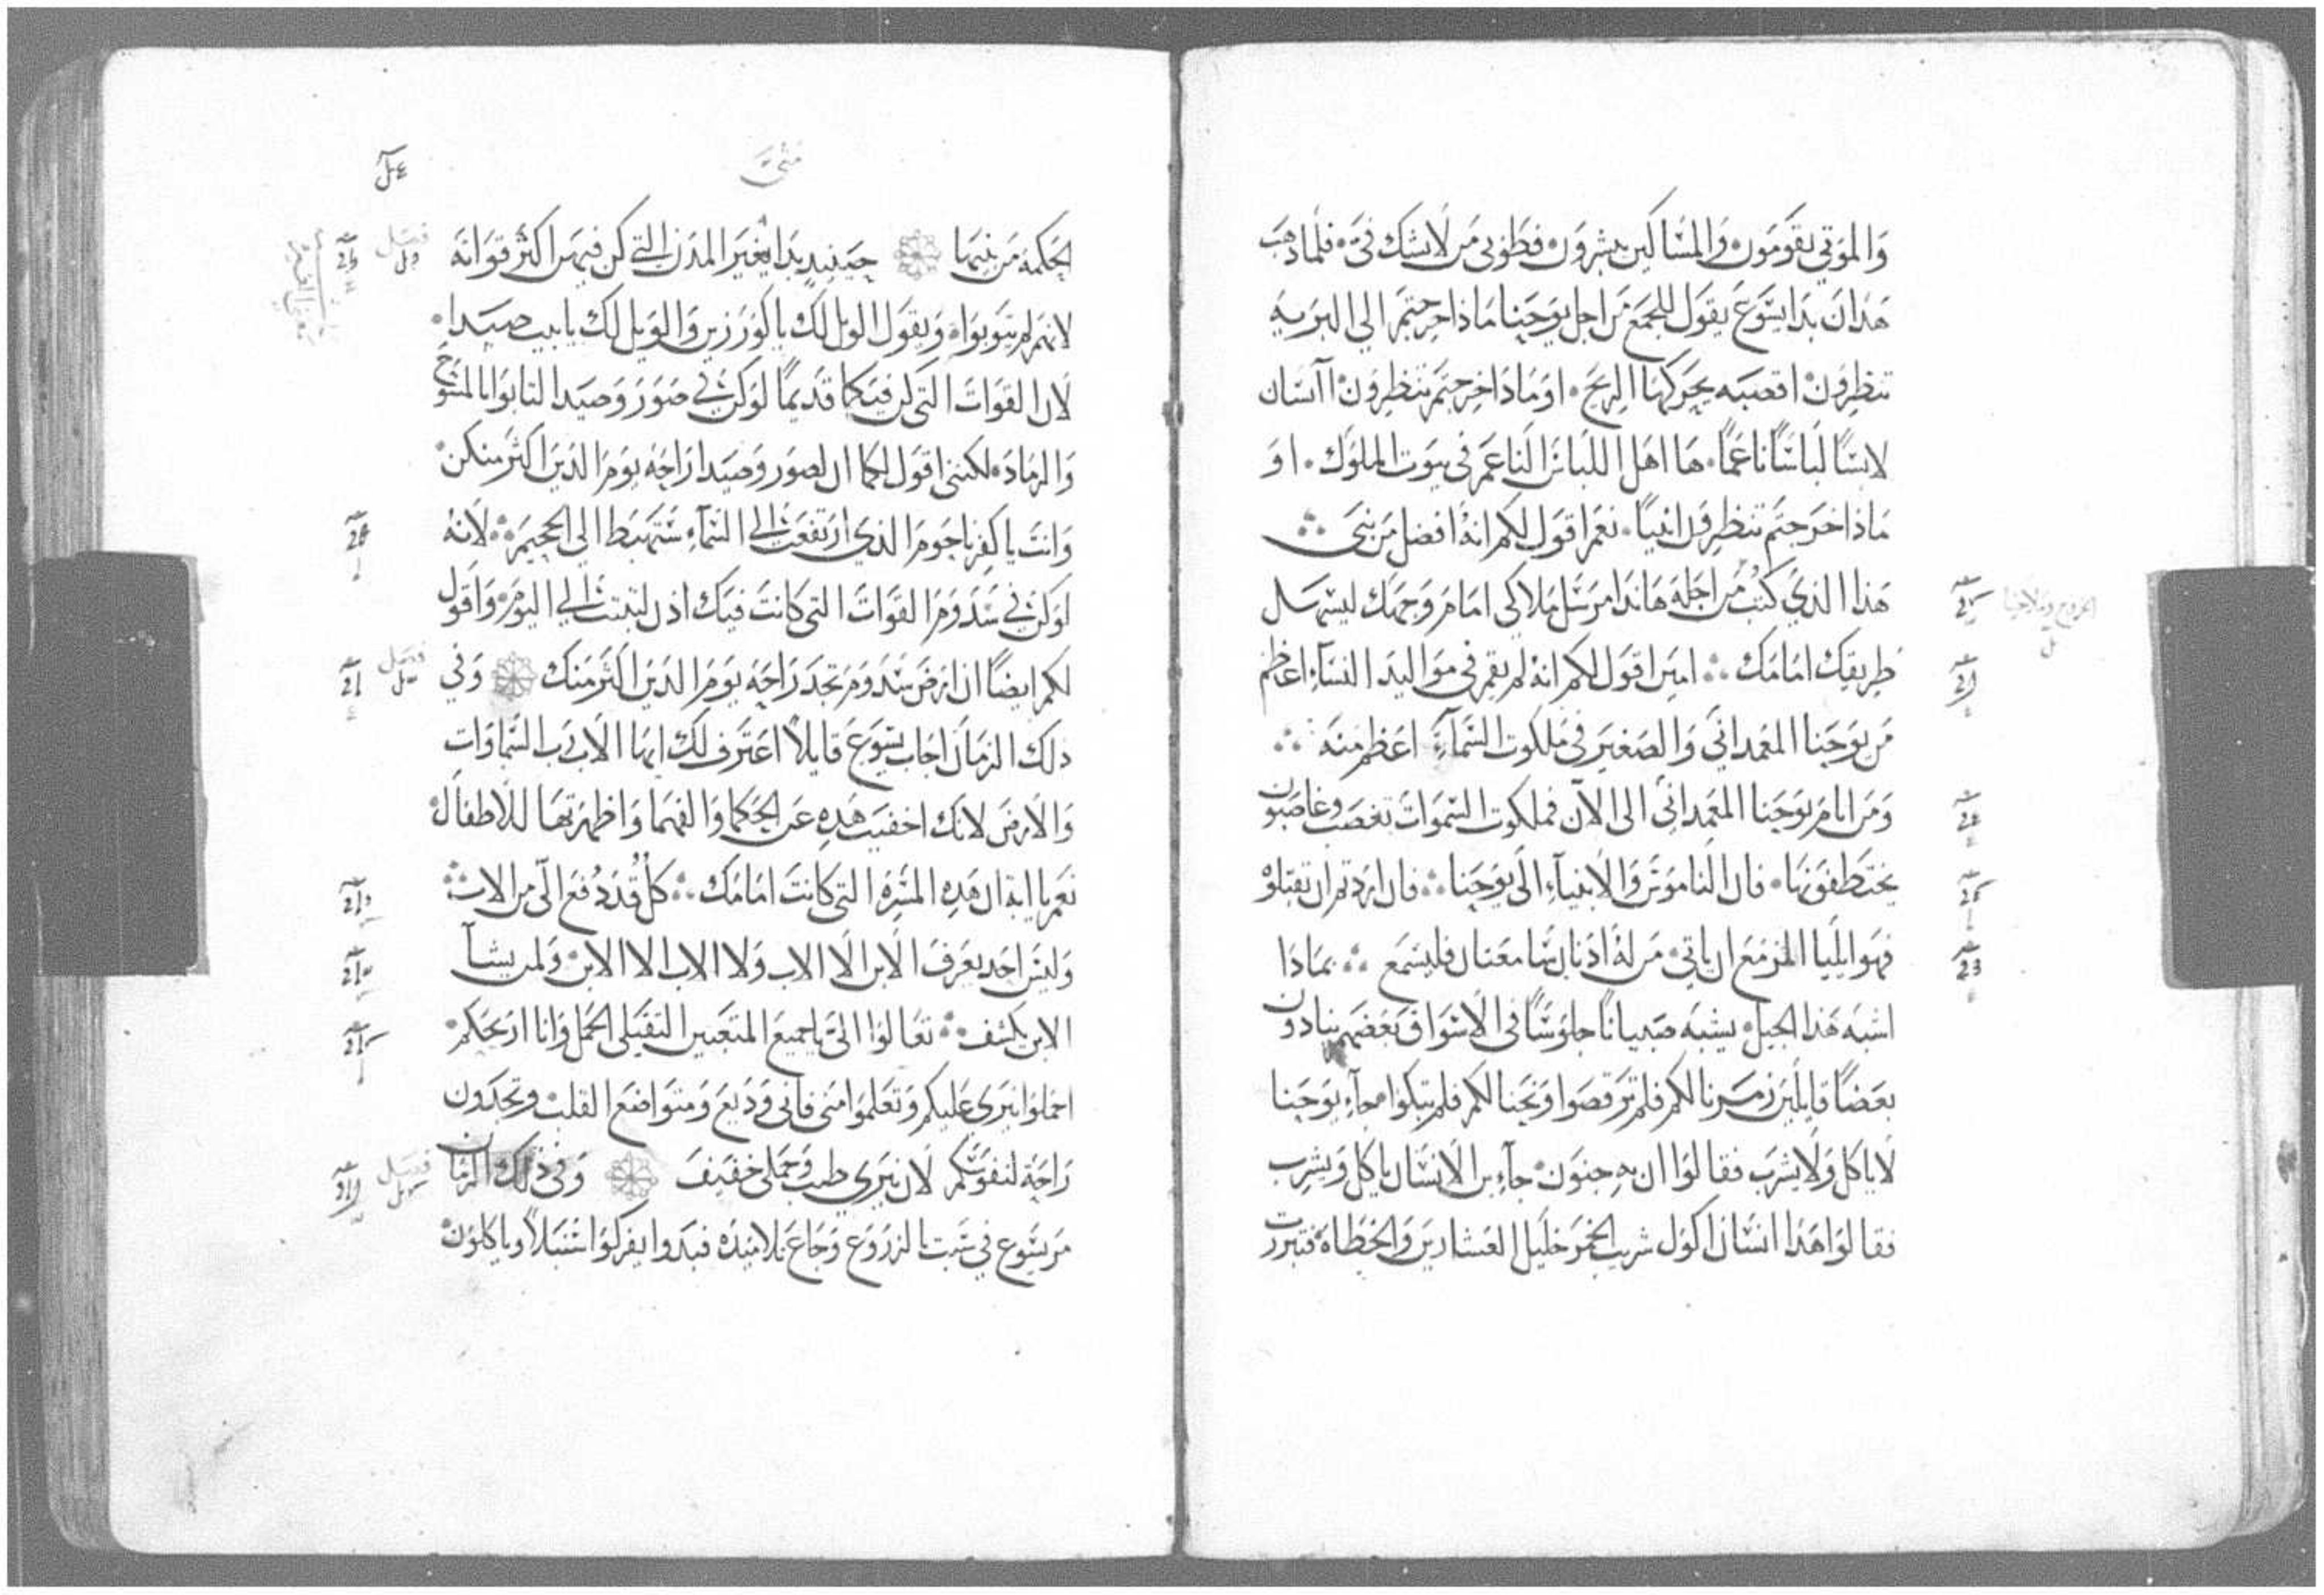 والموتي يقومون والمساكين يبشرون فطوبى من لا يشك في فلما ذهب
هذان بدا يسوع يقول للجمع من اجل يوحنا ماذا خرجتم الى البريه
تنظرون اقصبه يحركها الريح او ماذا خرجتم تنظرون اانسان
لابسًا لباسًا ناعمًا ها اهل اللباس الناعم في بيوت الملوك او
ماذا خرجتم تنظرون انبيا نعم اقول لكم انه افضل من نبي
هذا الذي كتب من اجله هانذا مرسل ملاكي امام وجهك ليسهل
طريقك امامك امين اقول لكم انه لم يقم في مواليد النساء اعظم
من يوحنا المعمداني والصغير في ملكوت السماء اعظم منه
ومن ايام يوحنا المعمداني الى الان فملكوت السموات تغصب وغاصبون
يختطفونها فان الناموس والانبياء الى يوحنا فان اردتم ان تقبلوه
فهو ايليا المزمع ان ياتي من له اذنان سامعتان فليسمع بماذا
اشبه هذا الجيل يشبه صبيانًا جلوسًا في الاسواق بعضهم ينادون
بعضًا قايلين زمرنا لكم فلم ترقصوا ونحنا لكم فلم تبكوا جاء يوحنا
لا ياكل ولا يشرب فقالوا ان به جنون جاء بن الانسان ياكل ويشرب
فقالوا هذا انسان اكول شريب الخمر خليل العشارين والخطاه فتبررت
متى
الحكمه من بنيها حينيذ بدا يعير المدن التي كن فيهن اكثر قواته
فصل
لانهم لم يتوبوا ويقول الويل لك يا كورزين والويل لك يا بيت صيدا
لان القوات التي كن فيكما قديمًا لو كن في صور وصيدا لتابوا بالمسوح
والرماد لكنني اقول لكما ان لصور وصيدا راحه يوم الدين اكثر منكن
وانت يا كفرناحوم الذي ارتفعت الى السماء ستهبط الى الجحيم لانه
لو كن في سدوم القوات التي كانت فيك اذن لثبتت الي اليوم واقول
لكم ايضًا ان ارض سدوم تجد راحه يوم الدين اكثر منك وفي
فصل
ذلك الزمان اجاب يسوع قايلاً اعترف لك ايها الاب رب السماوات
والارض لانك اخفيت هذه عن الحكما والفهما واظهرتها للاطفال
نعم يا ابه ان هذه المسره التي كانت امامك كل قد دفع الي من الاب
وليس احد يعرف الابن الا الاب ولا الاب الا الابن ولمن يشا
الابن يكشف تعالوا الي يا جميع المتعبين الثقيلى الحمل وانا اريحكم
احملوا نيري عليكم وتعلموا مني فاني وديع ومتواضع القلب وتجدون
راحة لنفوسكم لان نيري طيب وحملي خفيف وفي ذلك الزمان
فصل
مر يسوع في سبت الزروع وجاع تلاميذه فبدوا يفركوا سنبلاً وياكلون